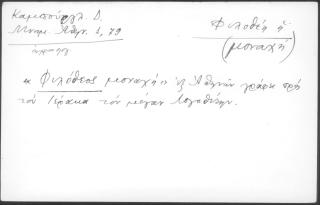 Καμπούρογλ. Δ.
Μνημ. Αθην. 1, 79
Φιλοθέη ἡ
(μοναχή)
« Φιλόθεος μοναχή » ἐξ Ἀθηνῶν γράφει πρὸ
τὸν Ἱέρακα τὸν μέγαν λογοθέτην.